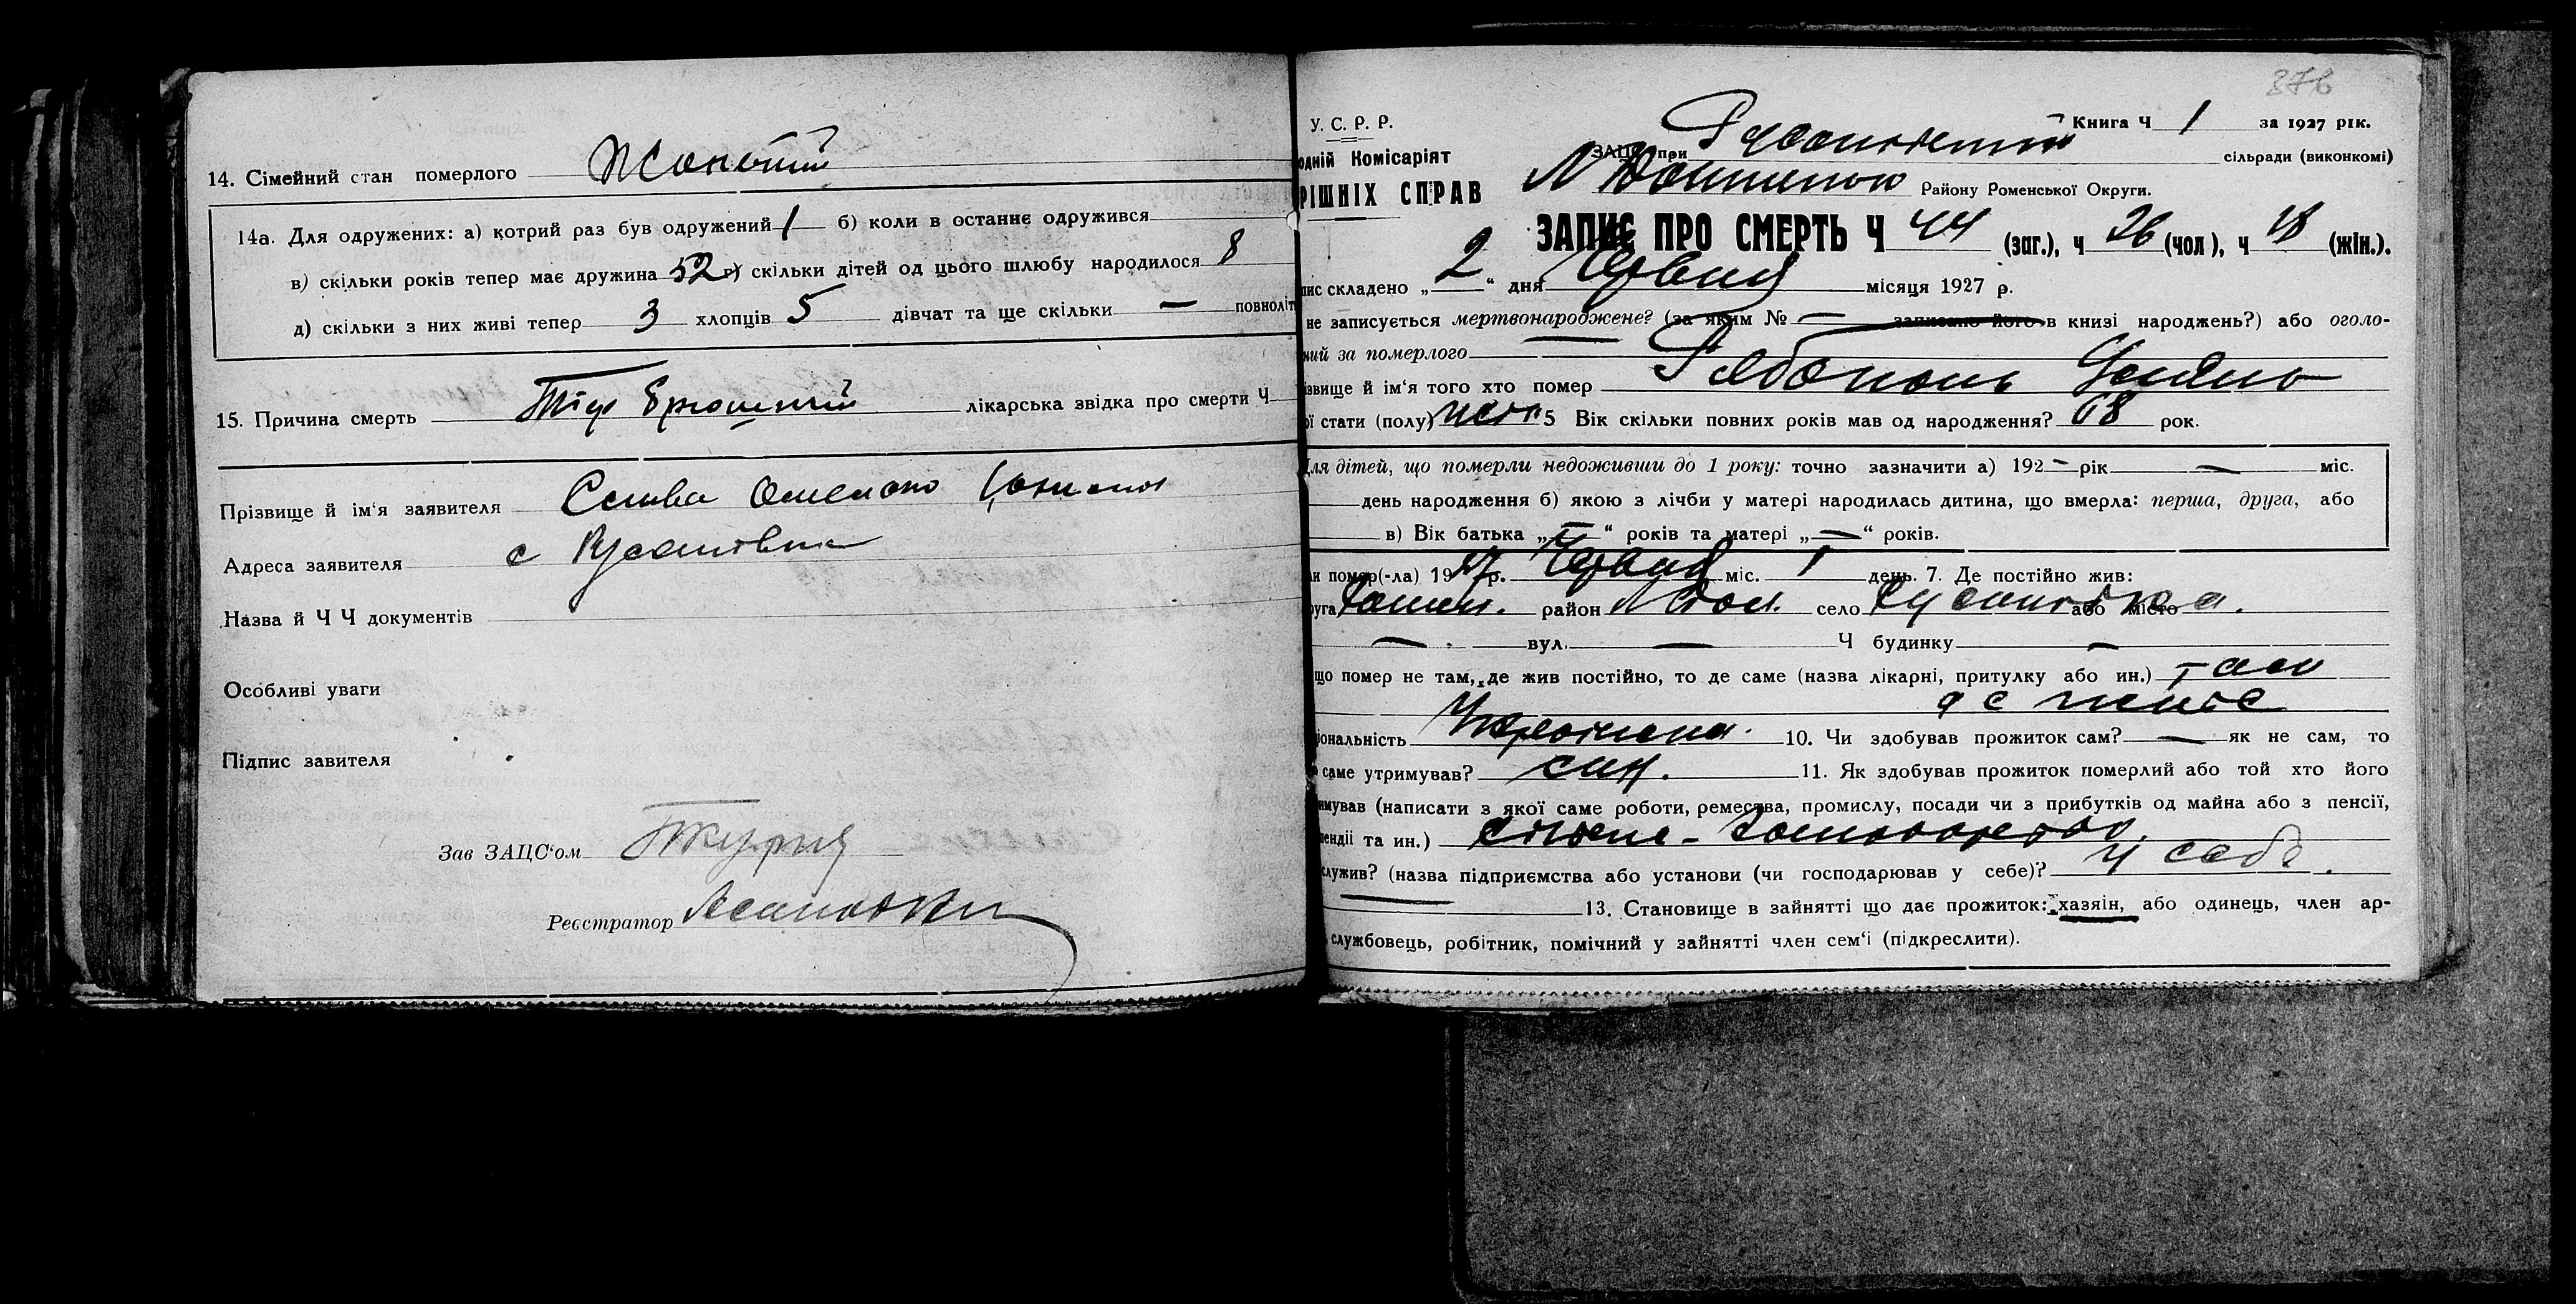 14. Сімейний стан померлого Жонатий
14а. Для одружених: а) котрий раз був одружений 1 б) коли в останнє одружився
в) скільки років тепер має дружина 52 г) скільки дітей од цього шлюбу народилося 8
д) скільки з них живі тепер 3 хлопців 5 дівчат та ще скільки — повноліт
15. Причина смерть Тіф брюшний лікарська звідка про смерти Ч
Прізвище й ім'я заявителя
Адреса заявителя с Русанівка
Назва й Ч Ч документів
Особливі уваги
Підпис завителя
Зав ЗАЦС'ом
Реєстратор
376
У. С. Р. Р.
Книга Ч 1 за 1927 рік.
одній Комісаріят
ЗАЦС при сільради (виконкомі)
РІШНІХ СПРАВ
Району Роменської Округи.
ЗАПИС ПРО СМЕРТЬ Ч 44 (заг.), ч 26 (чол), ч 18 (жін.).
пис складено „2“ дня Червня місяця 1927 р.
не записується мертвонароджене? (за яким № — записано його в книзі народжень?) або оголо-
ний за померлого
ізвище й ім'я того хто помер
ої стати (полу) 5 Вік скільки повних років мав од народження? 68 рок.
Для дітей, що померли недоживши до 1 року: точно зазначити а) 192 — рік — міс.
день народження б) якою з лічби у матері народилась дитина, що вмерла: перша, друга, або
в) Вік батька „—“ років та матері „—“ років.
ли помер(-ла) 1927 р. Червня міс. 1 день. 7. Де постійно жив:
руга Ромен. район село Русанівка. або місто
— вул. — Ч будинку —
що помер не там, де жив постійно, то де саме (назва лікарні, притулку або ин.) там
де живе
іональність 10. Чи здобував прожиток сам? — як не сам, то
о саме утримував? син. 11. Як здобував прожиток померлий або той хто його
имував (написати з якої саме роботи, ремества, промислу, посади чи з прибутків од майна або з пенсії,
пендії та ин.)
служив? (назва підприємства або установи (чи господарював у себе)? у себе.
— 13. Становище в зайнятті що дає прожиток: хазяін, або одинець, член ар-
службовець, робітник, помічний у зайнятті член сем'ї (підкреслити).